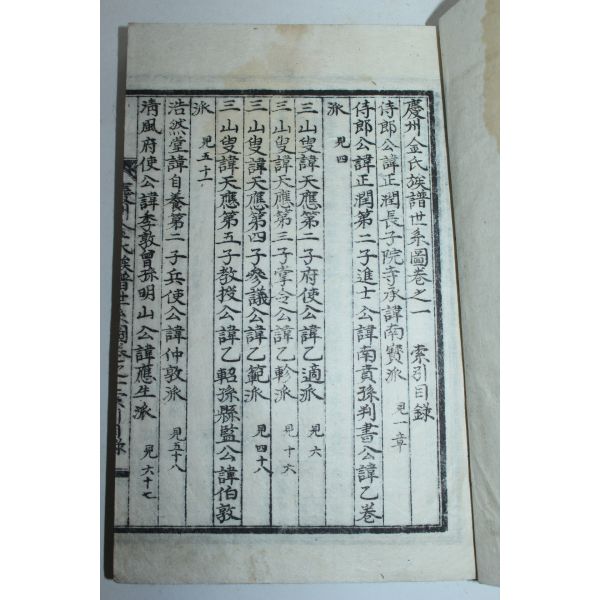 慶州金氏族譜世系圖卷之一 索引目錄
侍郎公諱正潤長子院寺承諱南寶派 見一章
侍郎公諱正潤第二子進士公諱南賁孫判書公諱乙卷
派 見四
三山叟諱天應第二子府使公諱乙適派 見六
三山叟諱天應第三子掌令公諱乙軫派 見十六
三山叟諱天應第四子參議公諱乙範派 見四十八
三山叟諱天應第五子教授公諱乙軺孫縣監公諱伯敦
派 見五十一
浩然堂諱自養第二子兵使公諱仲敦派 見五十八
淸風府使公諱季敦曾孫明山公諱應生派 見六十七
慶州金氏族譜世系圖卷之一索引目錄